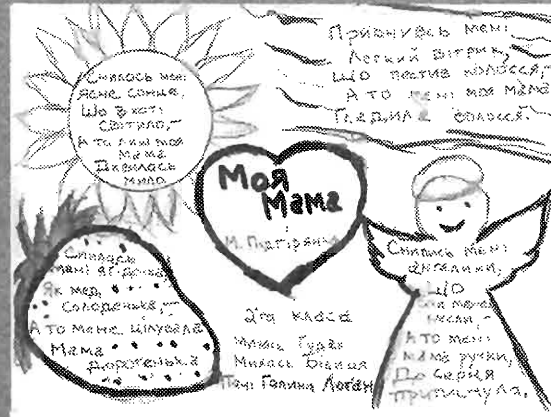 Снилось мені
Ясне сонце,
Що в хаті
світило,–
А то лиш моя
мама
Дивилась
мило
Приснувсь мені
Легкий вітрик,
Що пестив колосся,–
А то мені моя мама
Гладила волосся.
Моя
Мама
М. Підгірянка
Снилась
мені ягідочка,
Як мед
солоденька,–
А то мене цілувала
Мама
дорогенька
2га класа
Милась
Пані Галина Логан
Снились мені
ангелики,
Що
несли,–
А то мені
мама ручки,
До серця
притиснула.